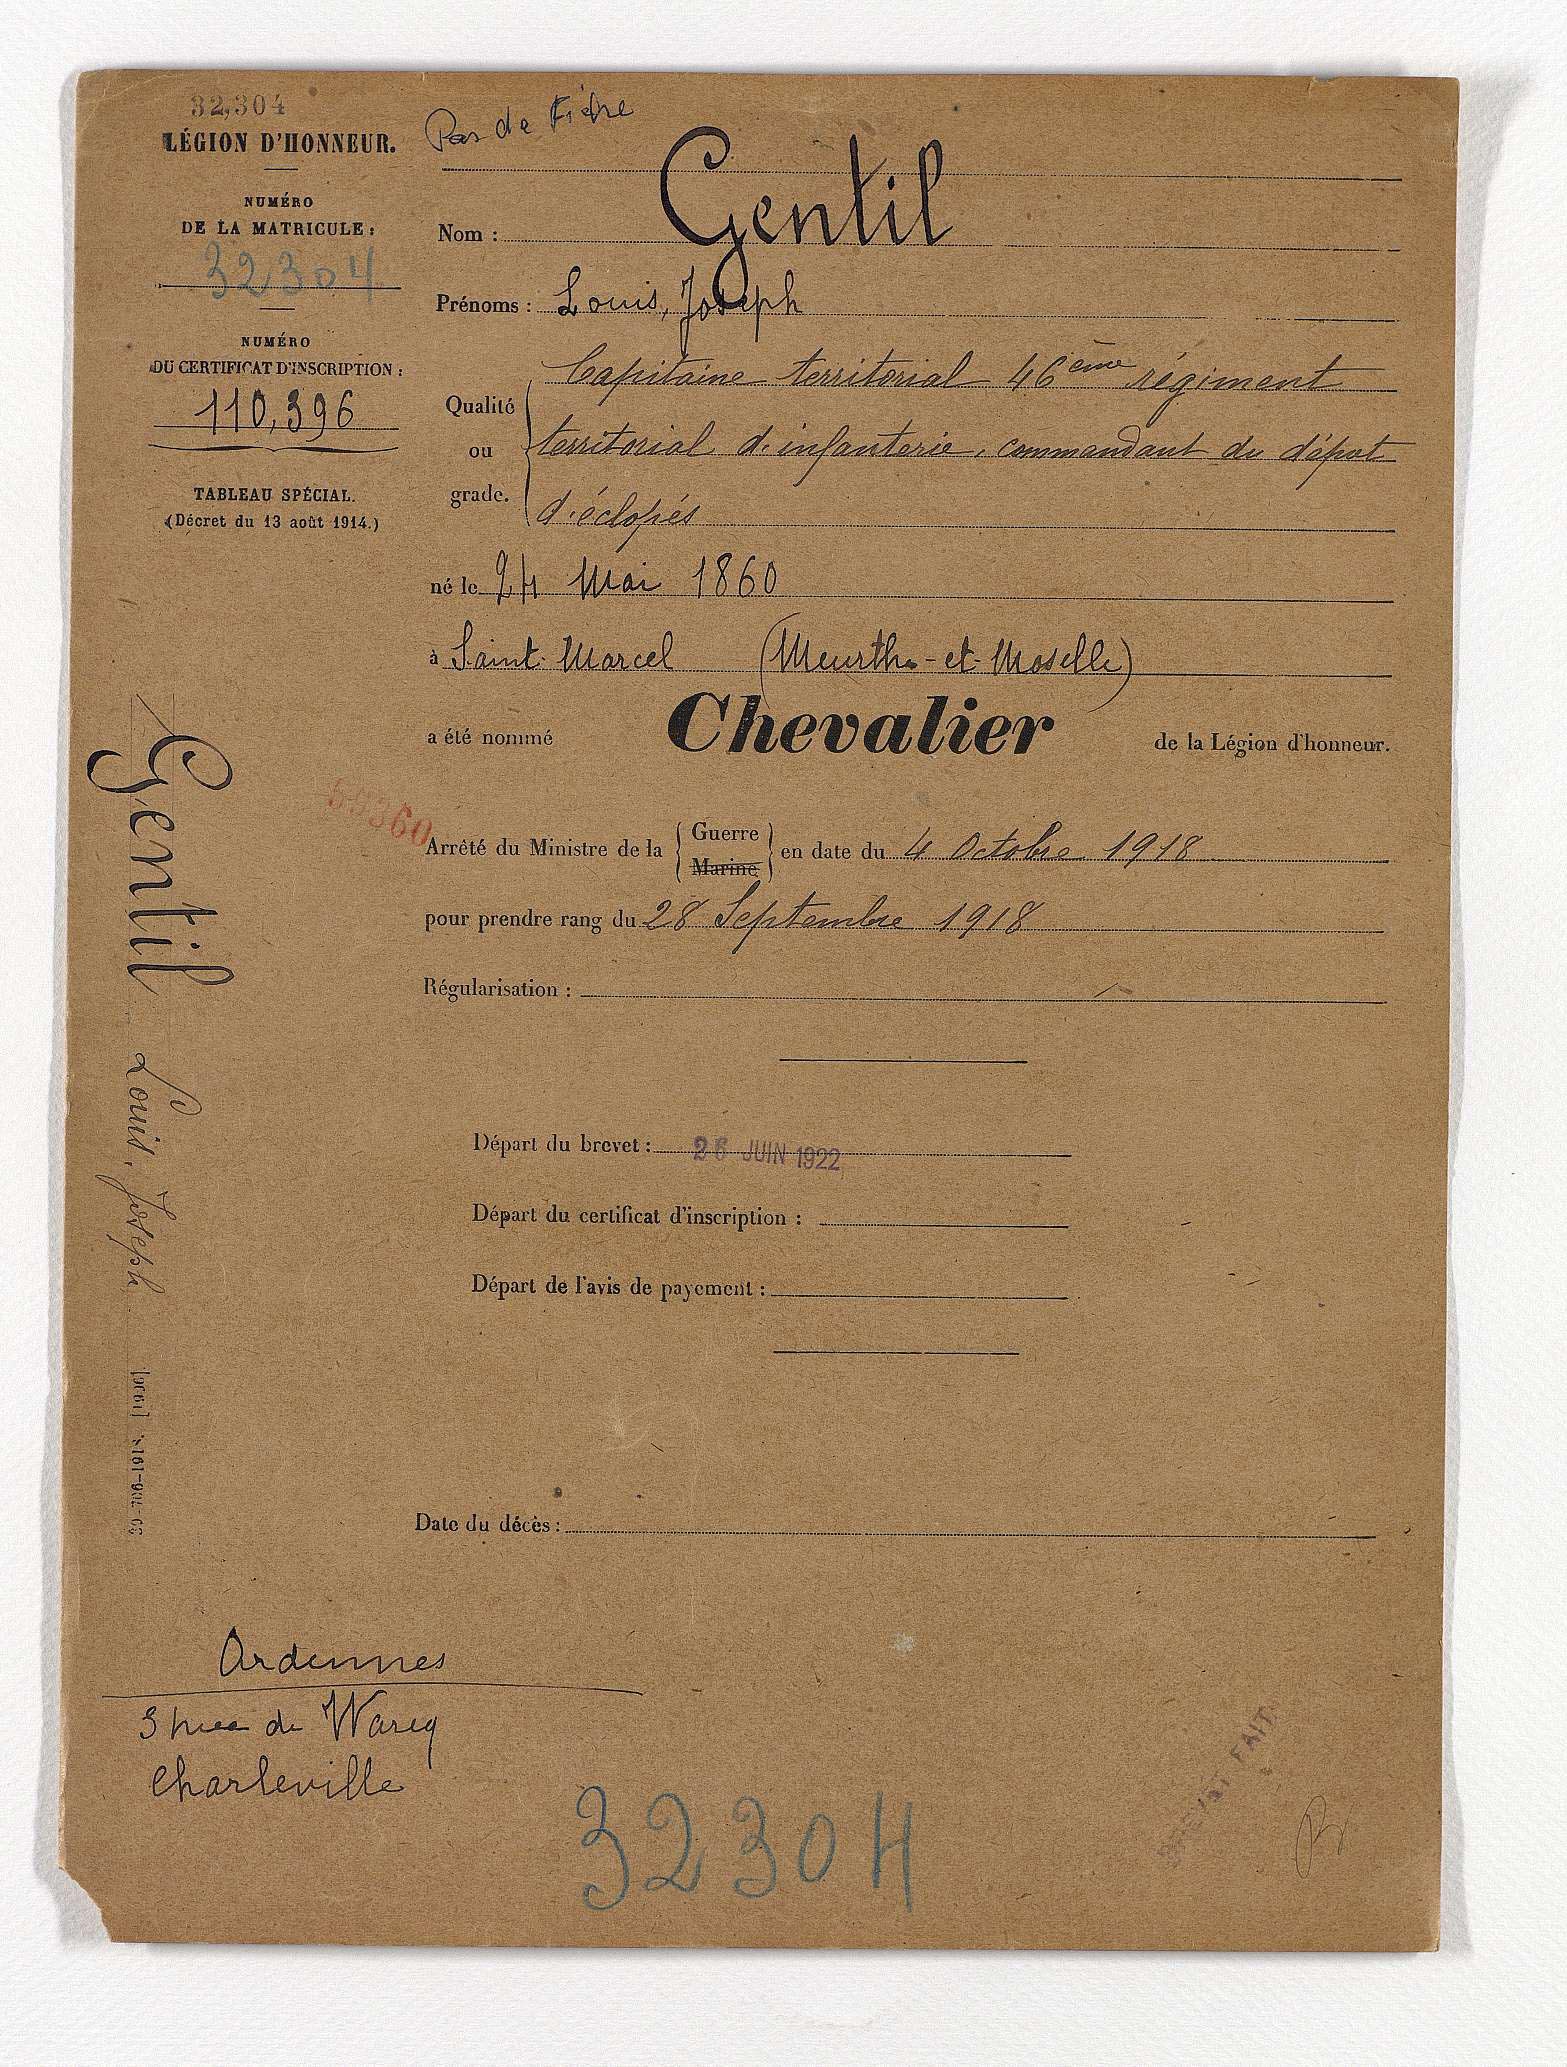 32,304
LÉGION D'HONNEUR.
NUMÉRO
DE LA MATRICULE :
32304
NUMÉRO
DU CERTIFICAT D'INSCRIPTION :
110,396
TABLEAU SPÉCIAL.
(Décret du 13 août 1914.)
Pas de Fiche
Nom : Gentil
Prénoms : Louis, Joseph
Qualité ou grade. Capitaine territorial 46ème régiment
territorial d'infanterie, commandant du dépot
d'éclopés
né le 24 Mai 1860
à Saint-Marcel (Meurthe-et-Moselle)
a été nommé Chevalier de la Légion d'honneur.
Arrêté du Ministre de la { Guerre Marine } en date du 4 Octobre 1918
pour prendre rang du 28 Septembre 1918
Régularisation :
Départ du brevet : 26 JUIN 1922
Départ du certificat d'inscription :
Départ de l'avis de payement :
Date du décès :
Gentil Louis, Joseph
Ardennes
3 rue de Warcq
Charleville
32304
BREVET FAIT